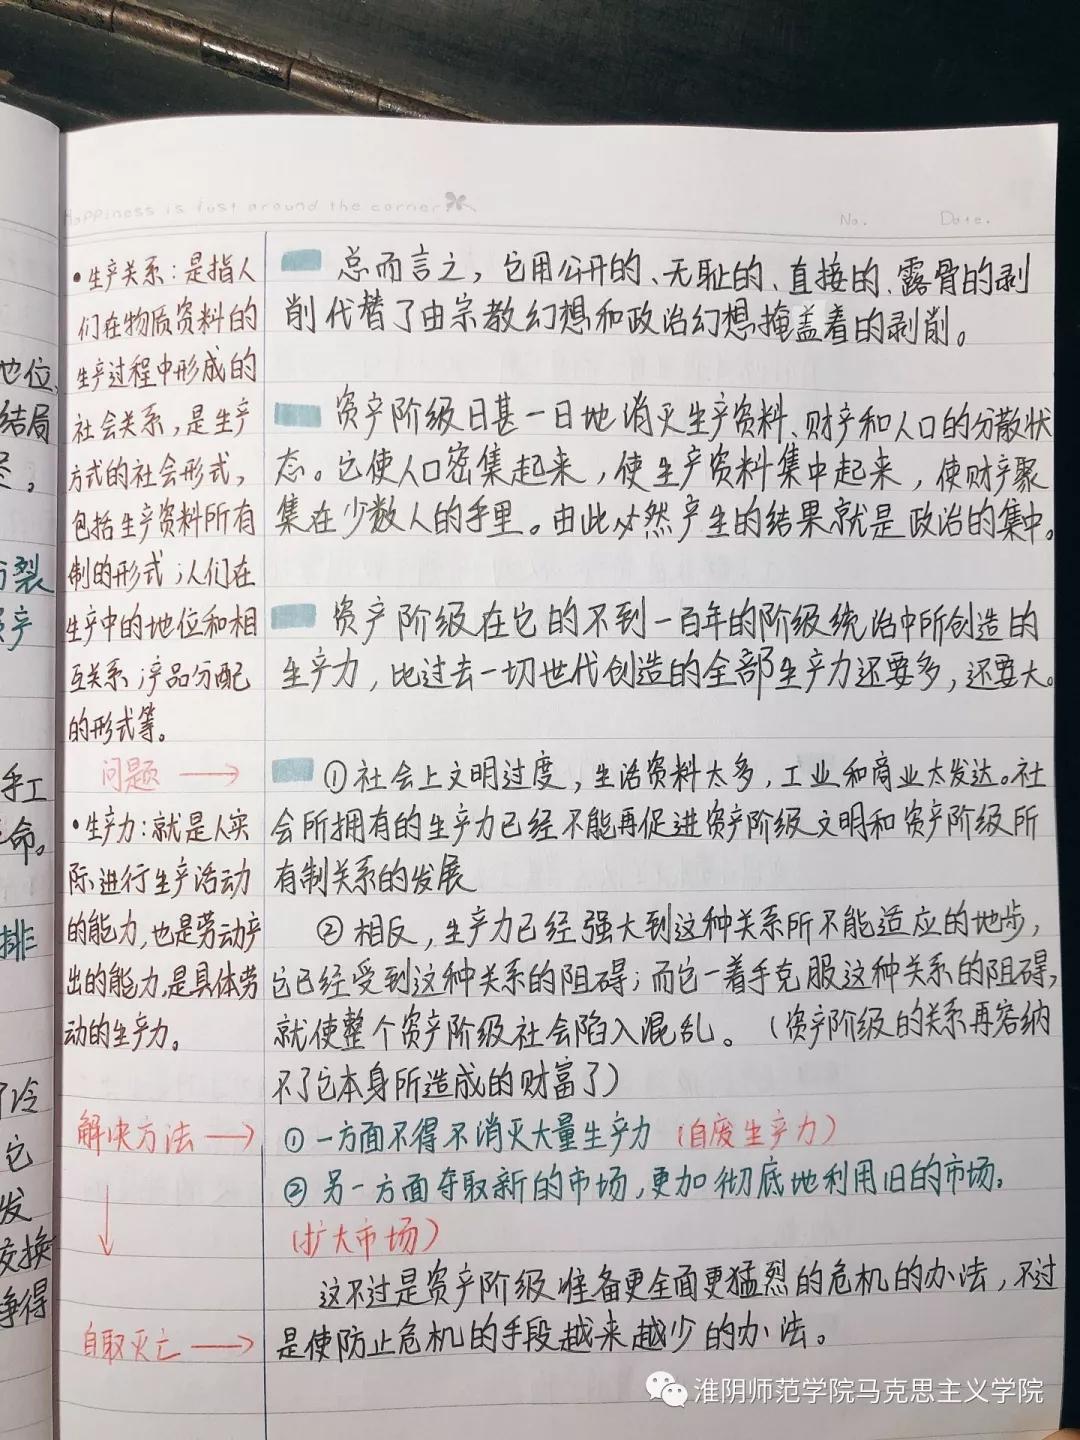 Happiness is just around the corner
No. Date.
地位,
结局
裂
产
手工
命。
排
冷
它
发
交换
争得
•生产关系：是指人
们在物质资料的
生产过程中形成的
社会关系，是生产
方式的社会形式，
包括生产资料所有
制的形式；人们在
生产中的地位和相
互关系；产品分配
的形式等。
问题 →
•生产力：就是人实
际进行生产活动
的能力，也是劳动产
出的能力，是具体劳
动的生产力。
解决方法 →
↓
自取灭亡 →
总而言之，它用公开的、无耻的、直接的、露骨的剥
削代替了由宗教幻想和政治幻想掩盖着的剥削。
资产阶级日甚一日地消灭生产资料、财产和人口的分散状
态。它使人口密集起来，使生产资料集中起来，使财产聚
集在少数人的手里。由此必然产生的结果就是政治的集中。
资产阶级在它的不到一百年的阶级统治中所创造的
生产力，比过去一切世代创造的全部生产力还要多，还要大。
①社会上文明过度，生活资料太多，工业和商业太发达。社
会所拥有的生产力已经不能再促进资产阶级文明和资产阶级所
有制关系的发展
②相反，生产力已经强大到这种关系所不能适应的地步，
它已经受到这种关系的阻碍；而它一着手克服这种关系的阻碍，
就使整个资产阶级社会陷入混乱。（资产阶级的关系再容纳
不了它本身所造成的财富了）
①一方面不得不消灭大量生产力（自废生产力）
②另一方面夺取新的市场，更加彻底地利用旧的市场。
（扩大市场）
这不过是资产阶级准备更全面更猛烈的危机的办法，不过
是使防止危机的手段越来越少的办法。
淮阴师范学院马克思主义学院